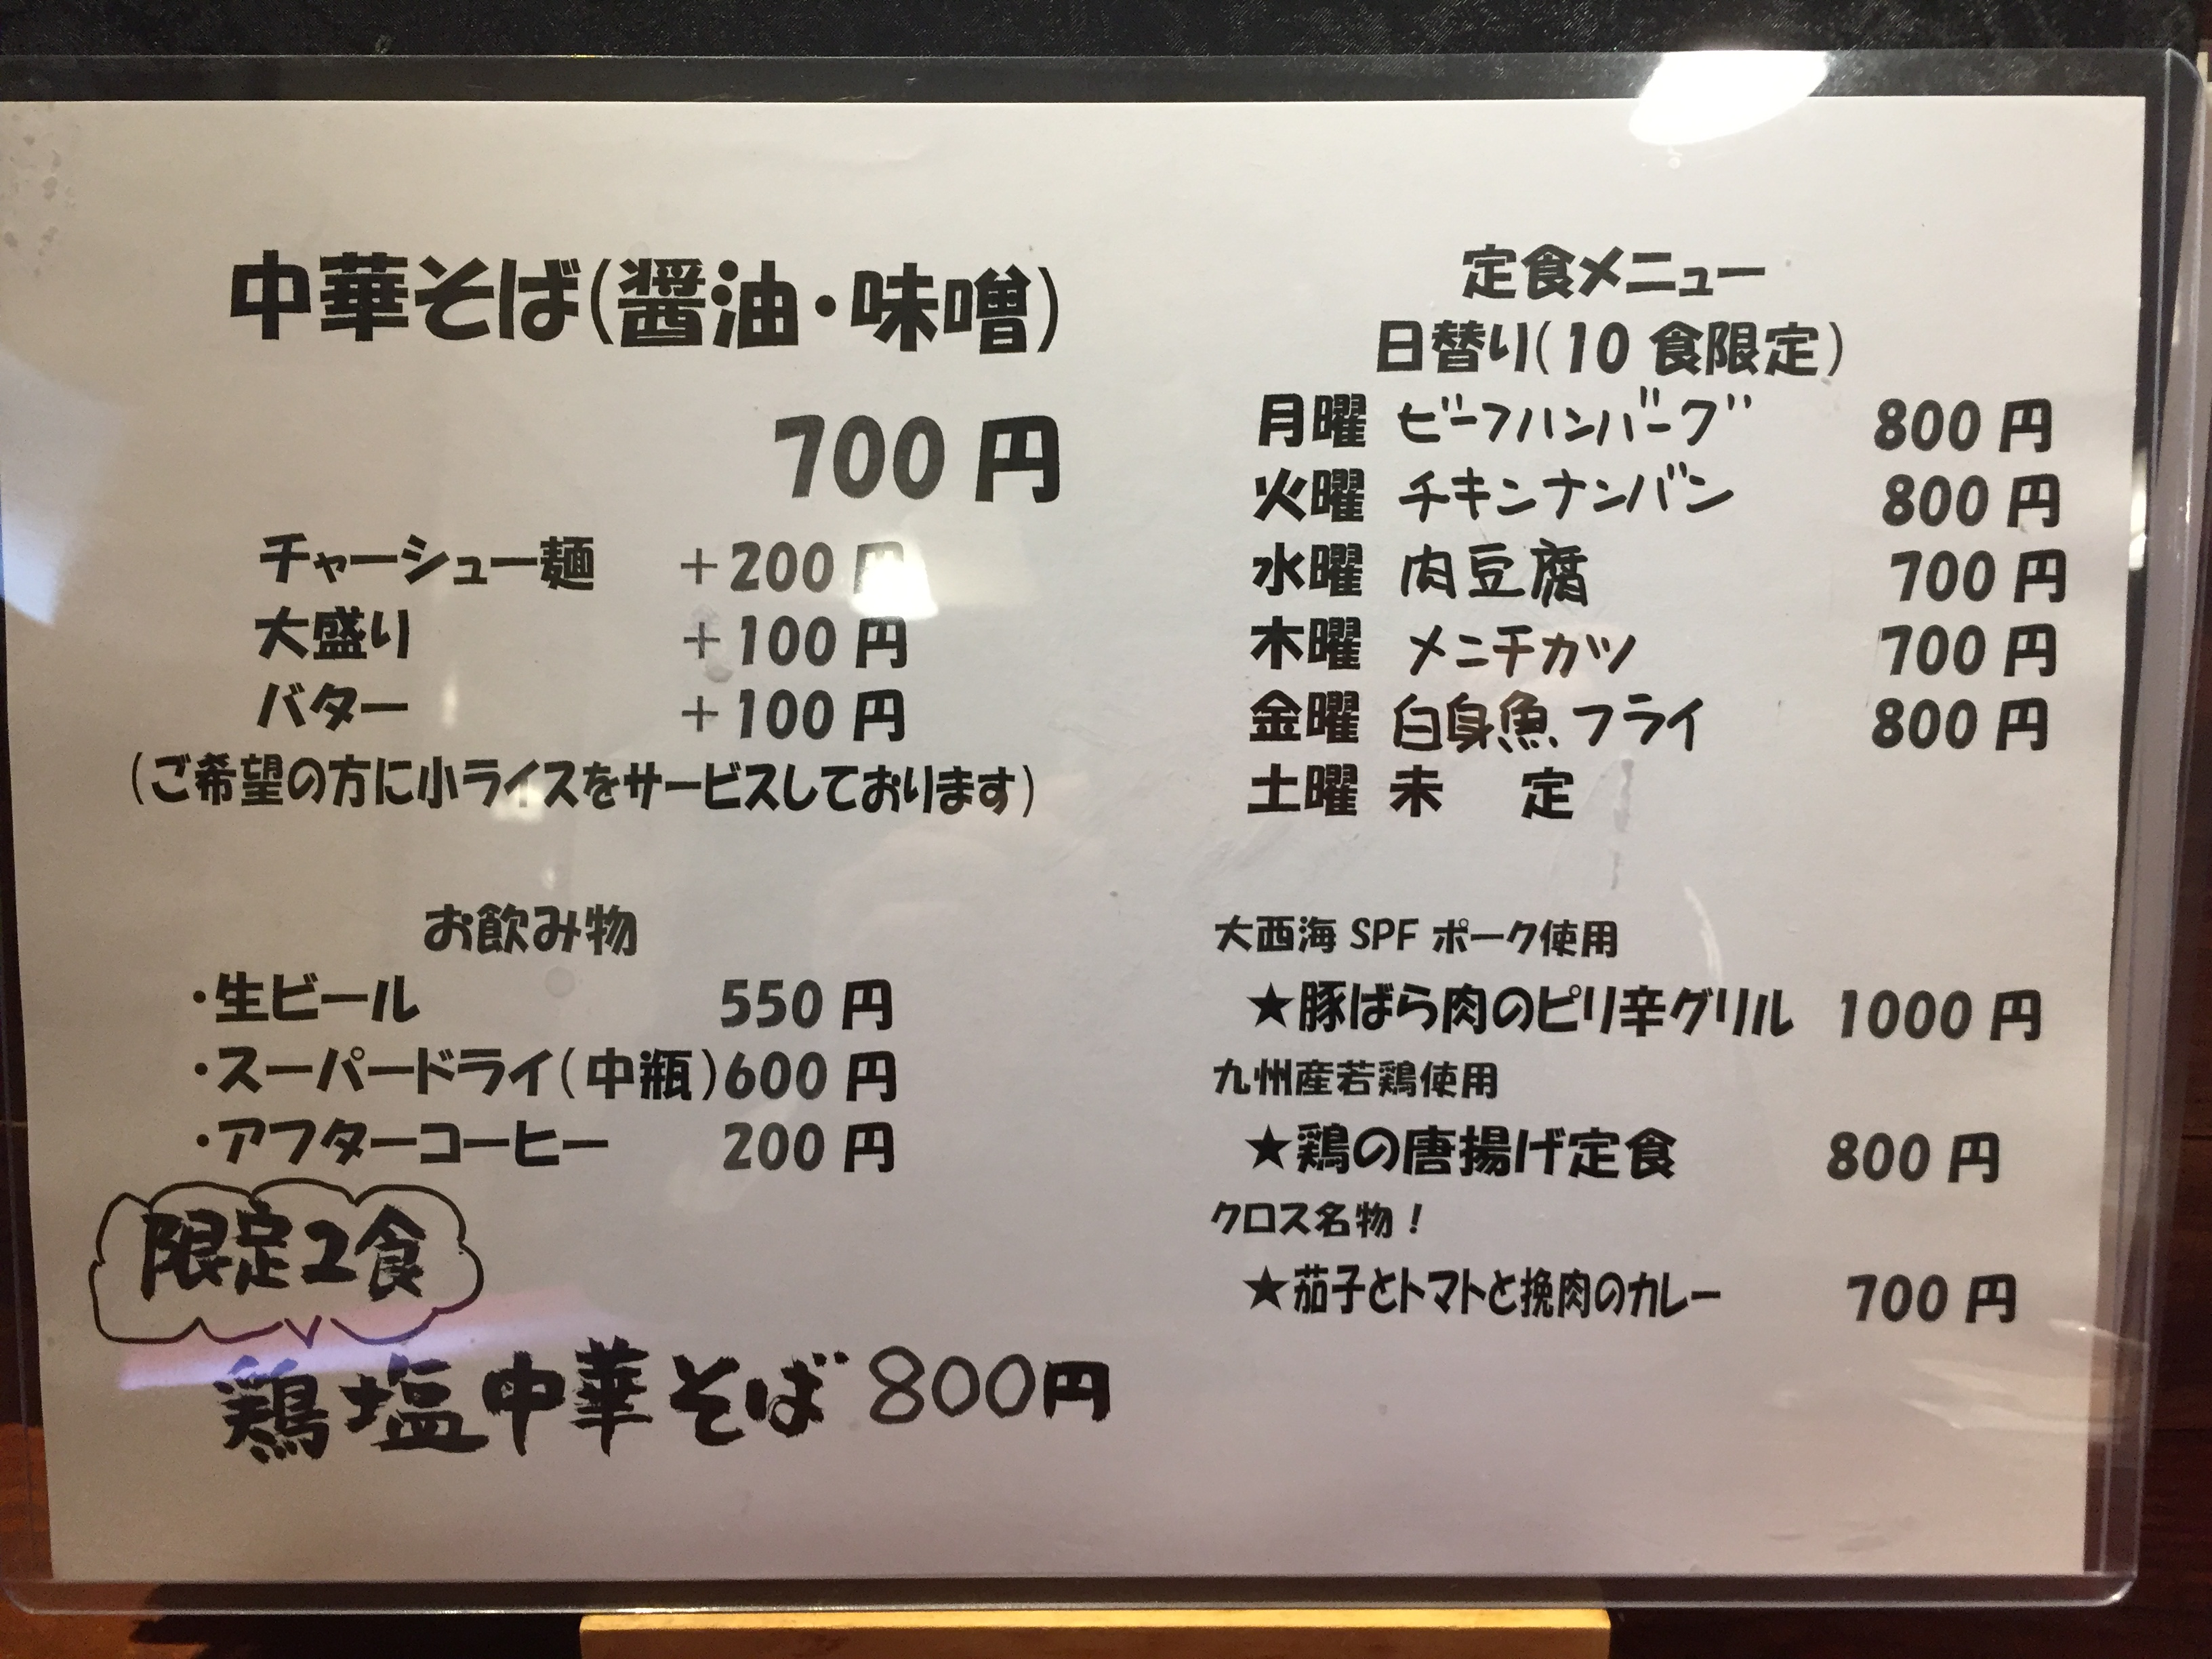 中華そば(醤油・味噌)
700 円
チャーシュー麺 +200 円
大盛り +100 円
バター +100 円
(ご希望の方に小ライスをサービスしております)
お飲み物
・生ビール 550 円
・スーパードライ(中瓶)600 円
・アフターコーヒー 200 円
限定2食
鶏塩中華そば 800円
定食メニュー
日替り(10 食限定)
月曜 ビーフハンバーグ 800 円
火曜 チキンナンバン 800 円
水曜 肉豆腐 700 円
木曜 メニチカツ 700 円
金曜 白身魚フライ 800 円
土曜 未 定
大西海 SPF ポーク使用
★豚ばら肉のピリ辛グリル 1000 円
九州産若鶏使用
★鶏の唐揚げ定食 800 円
クロス名物!
★茄子とトマトと挽肉のカレー 700 円